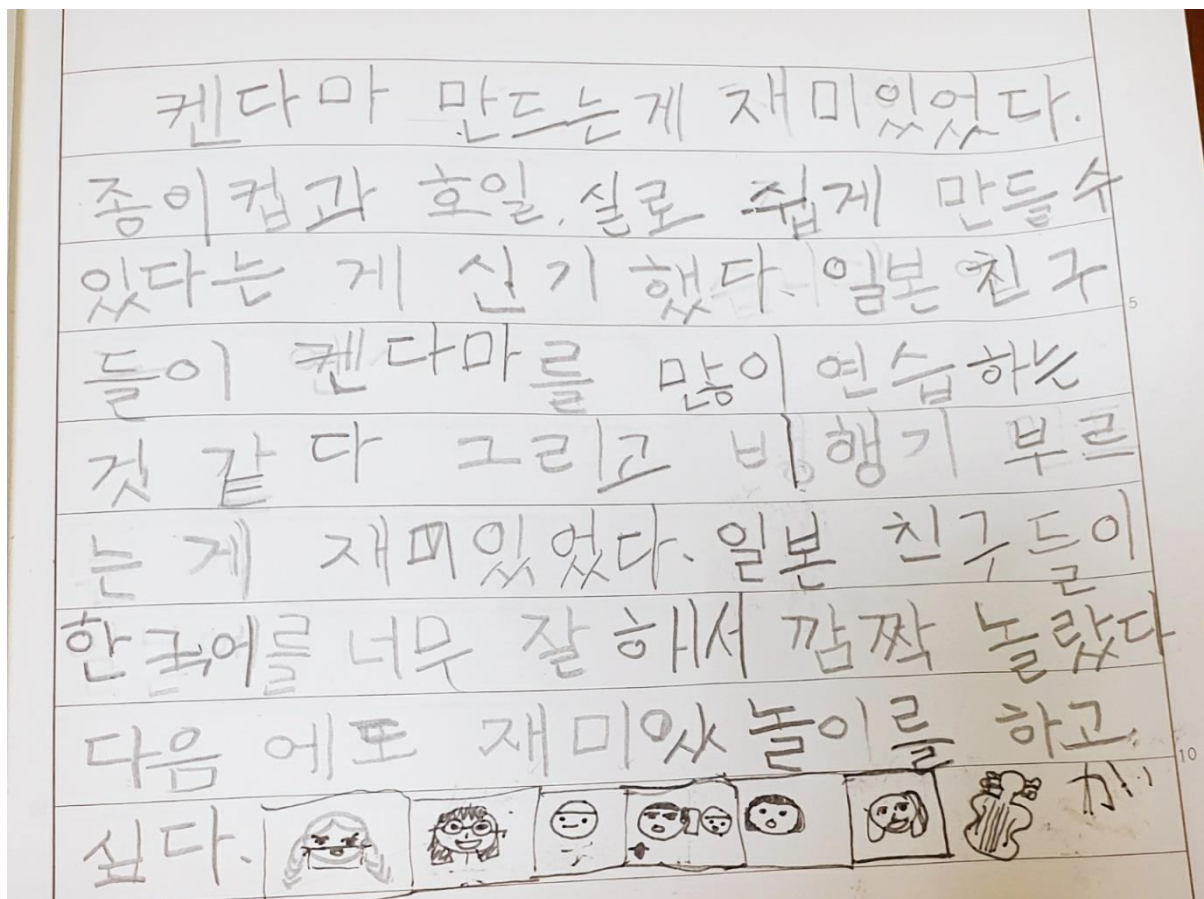 켄다마 만드는게 재미있었다.
종이컵과 호일, 실로 쉽게 만들수
있다는 게 신기했다. 일본 친구
들이 켄다마를 많이 연습하는
5
것 같다 그리고 비행기 부르
는 게 재미있었다. 일본 친구들이
한국어를 너무 잘 해서 깜짝 놀랐다
다음 에또 재미있 놀이를 하고
10
싶다.